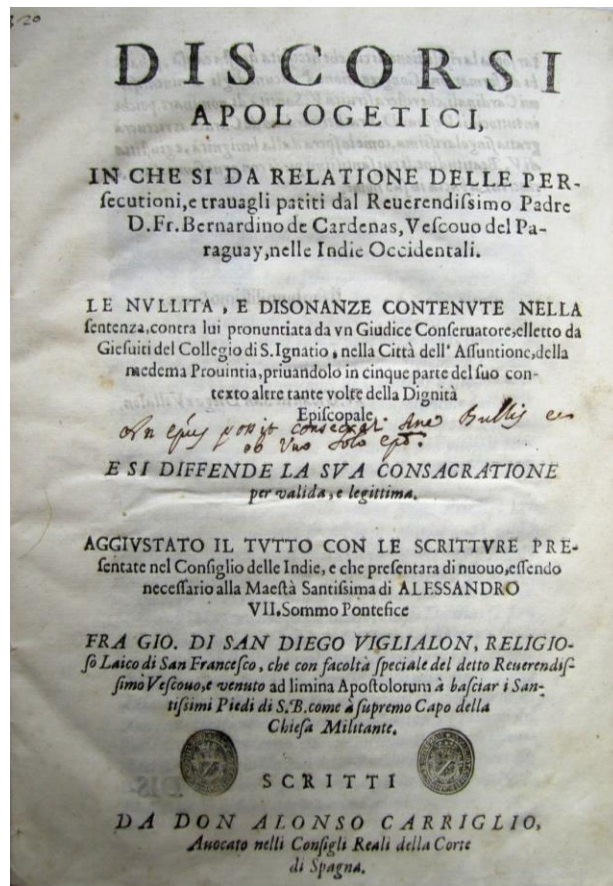 DISCORSI
APOLOGETICI,
IN CHE SI DA RELATIONE DELLE PER-
ſecutioni, e trauagli patiti dal Reuerendiſsimo Padre
D. Fr. Bernardino de Cardenas, Veſcouo del Pa-
raguay, nelle Indie Occidentali.
LE NVLLITA, E DISONANZE CONTENVTE NELLA
ſentenza, contra lui pronuntiata da vn Giudice Conſeruatore, elletto da
Gieſuiti del Collegio di S. Ignatio, nella Città dell' Aſſuntione, della
medema Prouintia, priuandolo in cinque parte del ſuo con-
texto altre tante volte della Dignità
Epiſcopale.
poſsit conſecrari sine Bullis
ab Vno Solo
E SI DIFFENDE LA SVA CONSACRATIONE
per valida, e legittima.
AGGIVSTATO IL TVTTO CON LE SCRITTVRE PRE-
ſentate nel Conſiglio delle Indie, e che preſentara di nuouo, eſſendo
neceſſario alla Maeſtà Santiſsima di ALESSANDRO
VII. Sommo Pontefice
FRA GIO. DI SAN DIEGO VIGLIALON, RELIGIO-
ſo Laico di San Franceſco, che con facoltà ſpeciale del detto Reuerendiſ-
ſimo Veſcouo, e venuto ad limina Apoſtolorum à baſciar i San-
tiſsimi Piedi di S. B. come à ſupremo Capo della
Chieſa Militante.
SCRITTI
DA DON ALONSO CARRIGLIO,
Auocato nelli Conſigli Reali della Corte
di Spagna.